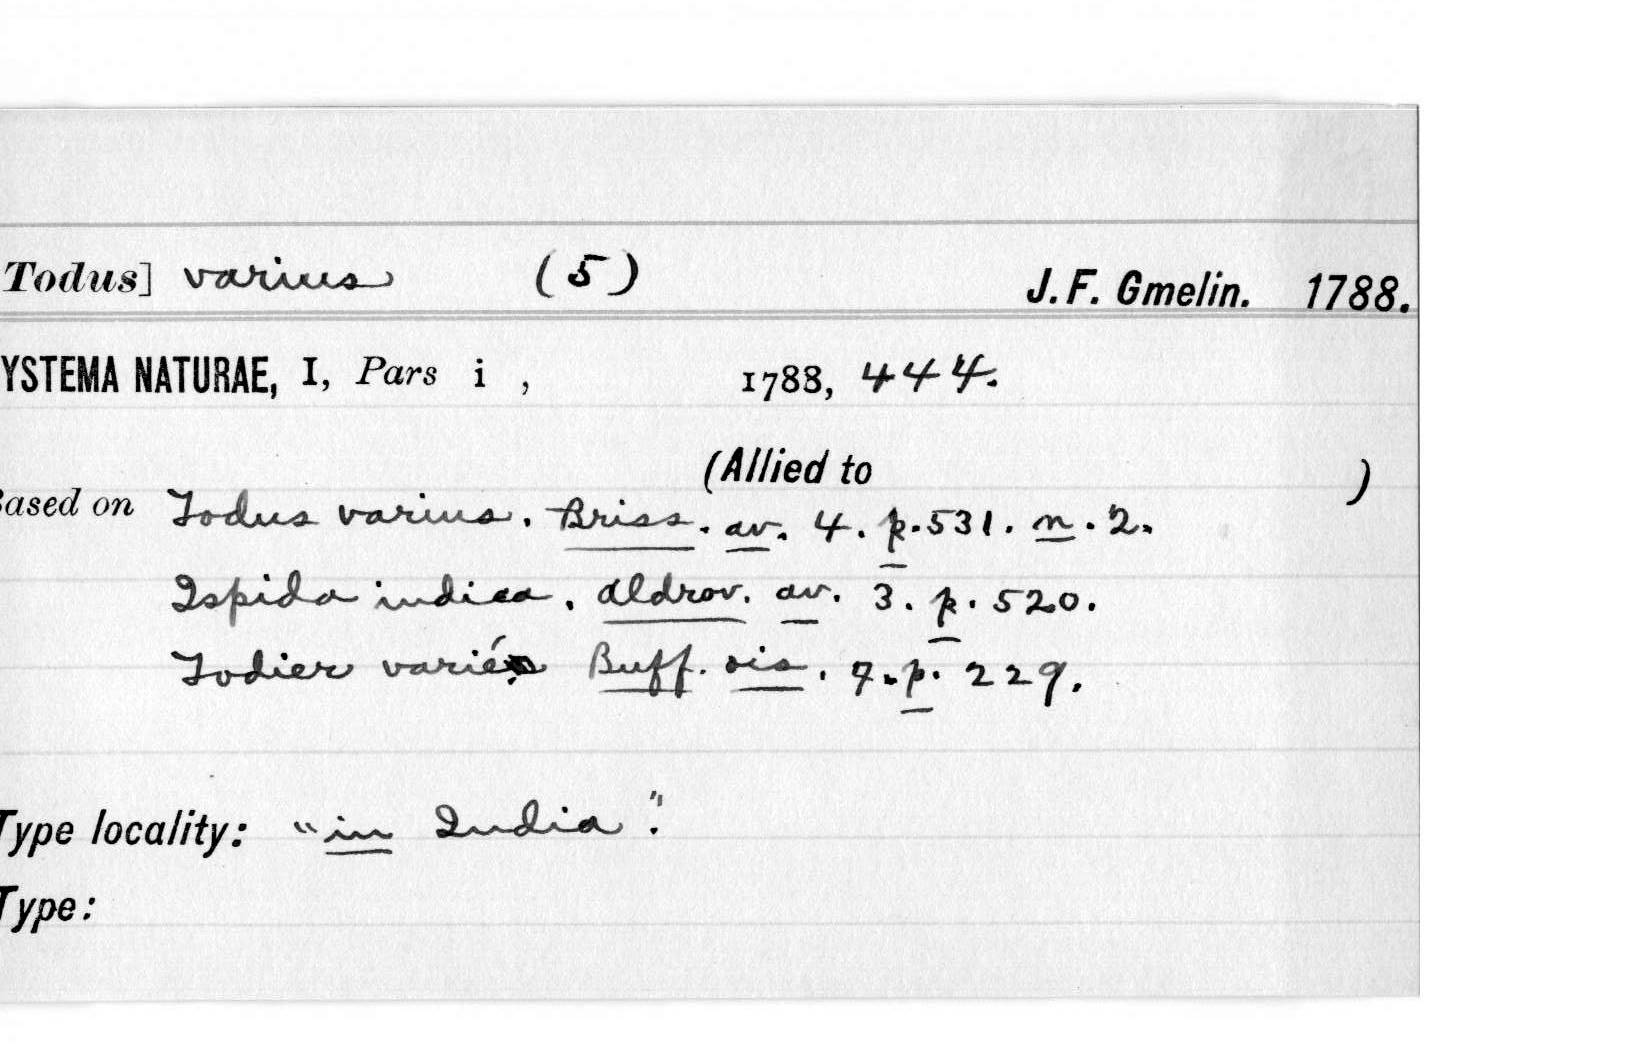 Todus] varius (5) J. F. Gmelin. 1788.
YSTEMA NATURAE, I, Pars i , 1788, 444.
(Allied to )
Based on Todus varius. Briss. av. 4. p. 531. n. 2.
Ispida indica. Aldrov. av. 3. p. 520.
Todier varié Buff. ois. 7. p. 229.
Type locality: "in India".
Type: